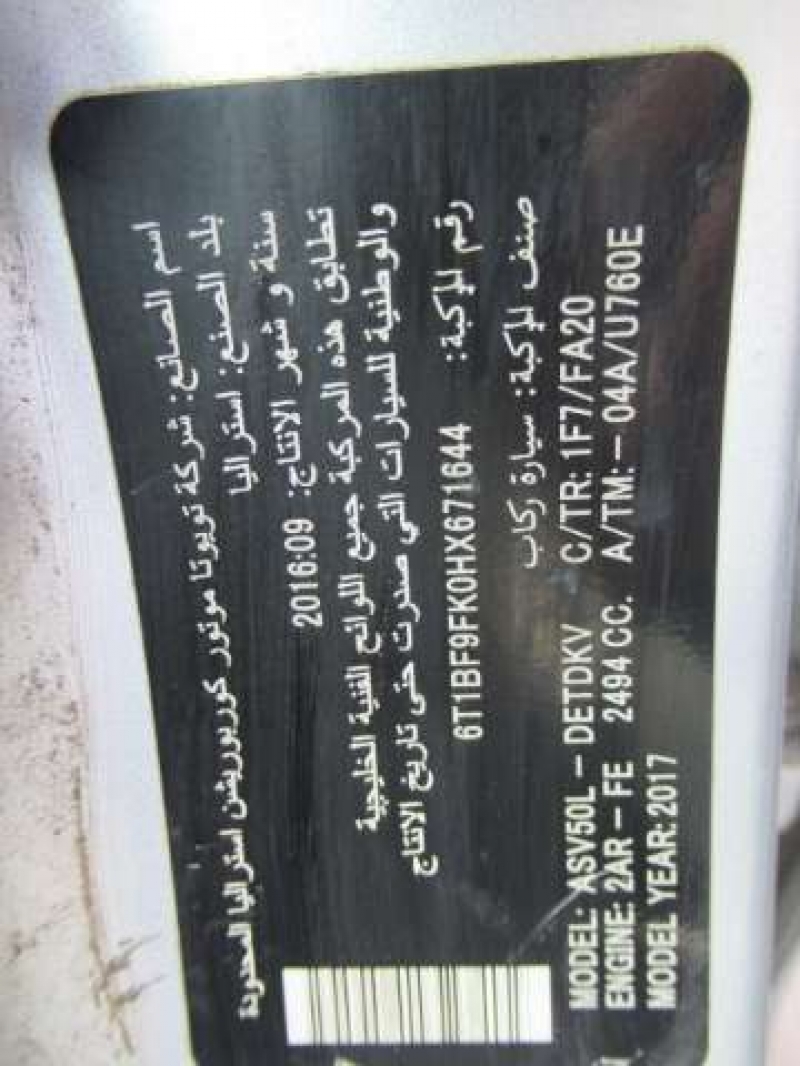 اسم الصانع: شركة تويوتا موتور كوربوريشن استراليا المحدودة
بلد الصنع: استراليا
سنة و شهر الانتاج: 2016:09
تطابق هذه المركبة جميع اللوائح الفنية الخليجية
والوطنية للسيارات التي صدرت حتى تاريخ الانتاج
رقم المركبة: 6T1BF9FK0HX671644
صنف المركبة: سيارة ركاب
MODEL: ASV50L – DETDKV C/TR: 1F7/FA20
ENGINE: 2AR – FE 2494 CC. A/TM: – 04A/U760E
MODEL YEAR: 2017